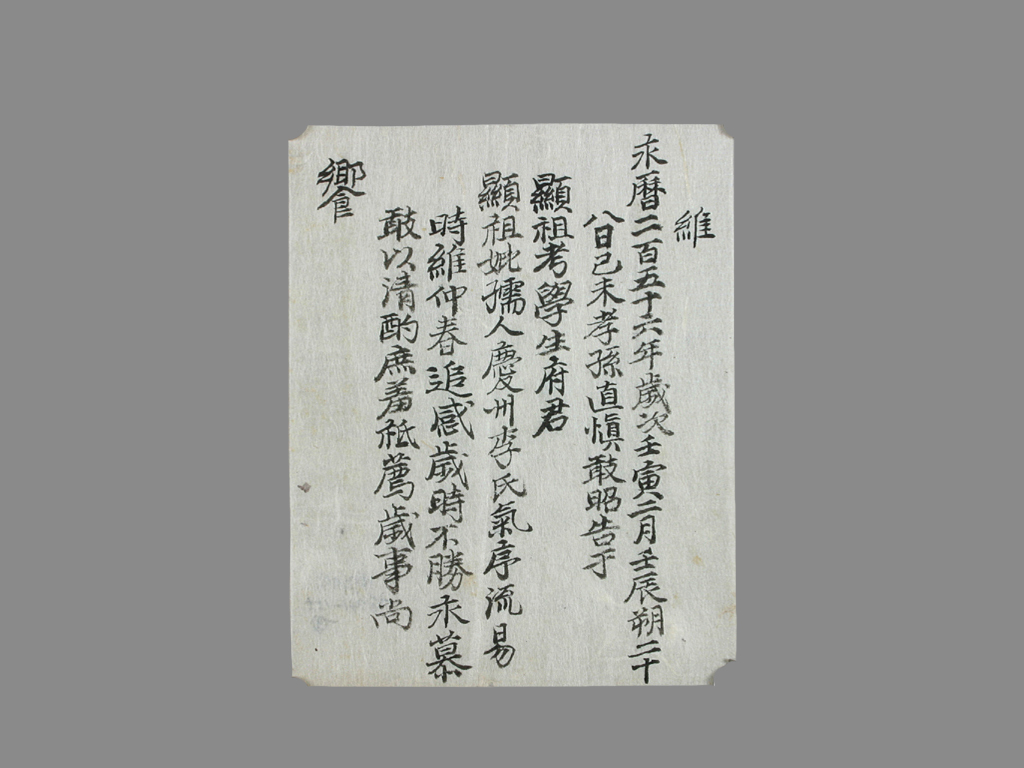 維
永曆二百五十六年歲次壬寅二月壬辰朔二十
八日己未孝孫直愼敢昭告于
顯祖考學生府君
顯祖妣孺人慶州李氏氣序流易
時維仲春追感歲時不勝永慕
敢以清酌庶羞祗薦歲事尙
饗